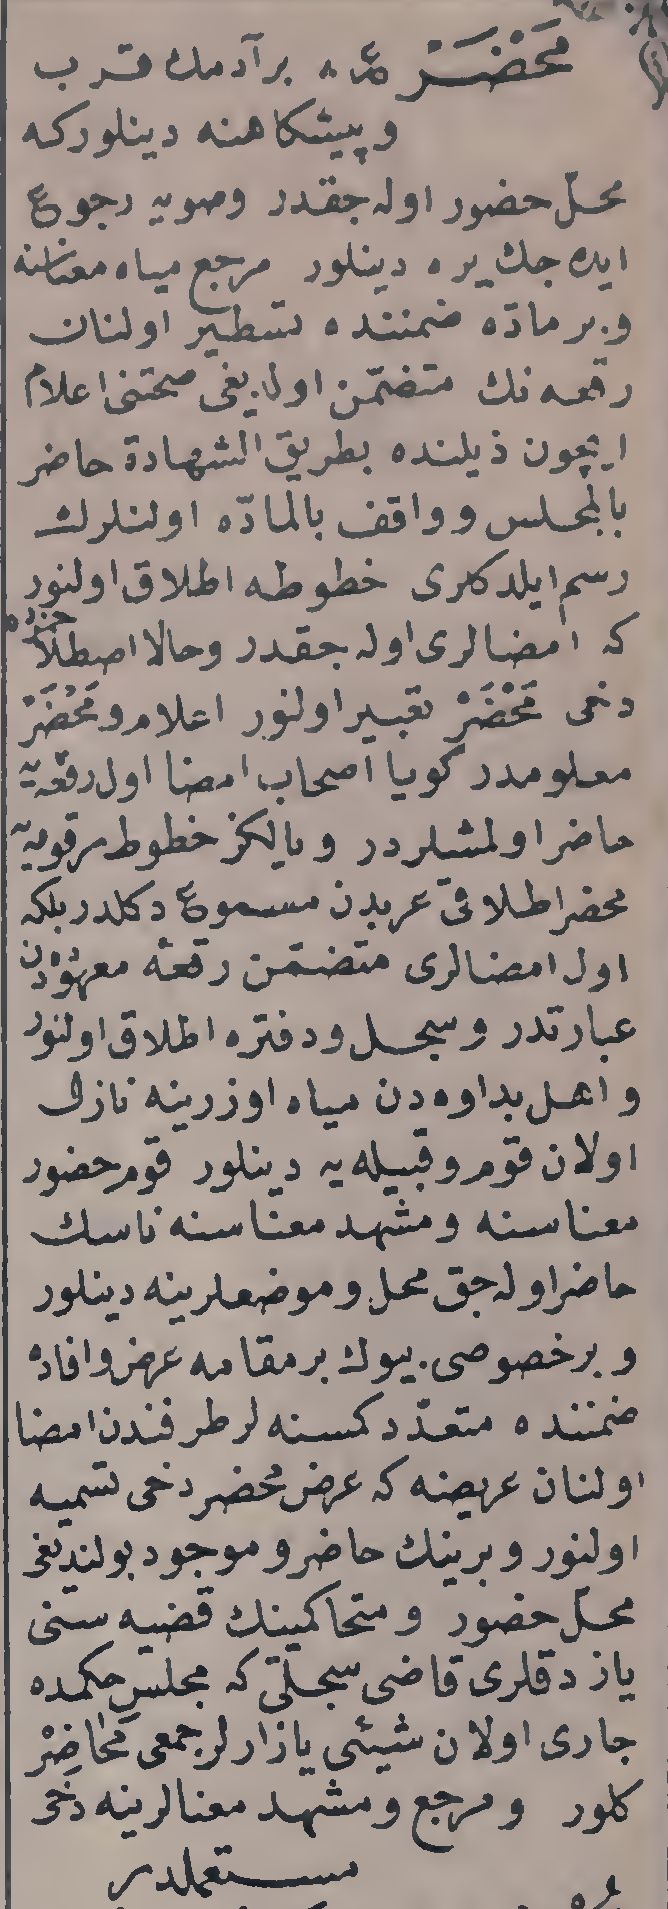 مَحْضَرْ ع ه بر آدمك قرب
و پيشكاهنه دينلور كه
محلّ حضور اوله جقدر وصويه رجوع
ايده جك يره دينلور مرجع مياه معناسنه
و بر مادّه ضمننده تسطير اولنان
رقعه نك متضمّن اولديغى صحتنى اعلام
ايچون ذيلنده بطريق الشهادة حاضر
بالمجلس و واقف بالمادّه اولنلرك
رسم ايلدكلرى خطوطه اطلاق اولنور
كه امضالرى اوله جقدر وحالا اصطلاحمزده
دخى مَحْضَرْ تعبير اولنور اعلام و مَحْضَرْ
معلومدر كويا اصحاب امضا اول رقعه يه
حاضر اولمشلردر و يالكز خطوط مرقومه يه
محضر اطلاقى عربدن مسموع دكلدر بلكه
اول امضالرى متضمّن رقعهٔ معهوده دن
عبارتدر و سجل و دفتره اطلاق اولنور
و اهل بداوه دن مياه اوزرينه نازل
اولان قوم و قبيله يه دينلور قوم حضور
معناسنه و مشهد معناسنه ناسك
حاضر اوله جق محل و موضعلرينه دينلور
و بر خصوصى بيوك بر مقامه عرض و افاده
ضمننده متعدّد كمسنه لر طرفندن امضا
اولنان عريضه كه عرض محضر دخى تسميه
اولنور و برينك حاضر و موجود بولنديغى
محلّ حضور و متحاكمينك قضيه سنى
يازدقلرى قاضى سجلّى كه مجلس حكمده
جارى اولان شيئى يازارلر جمعى مَحَاضِرْ
كلور و مرجع و مشهد معنالرينه دخى
مستعملدر